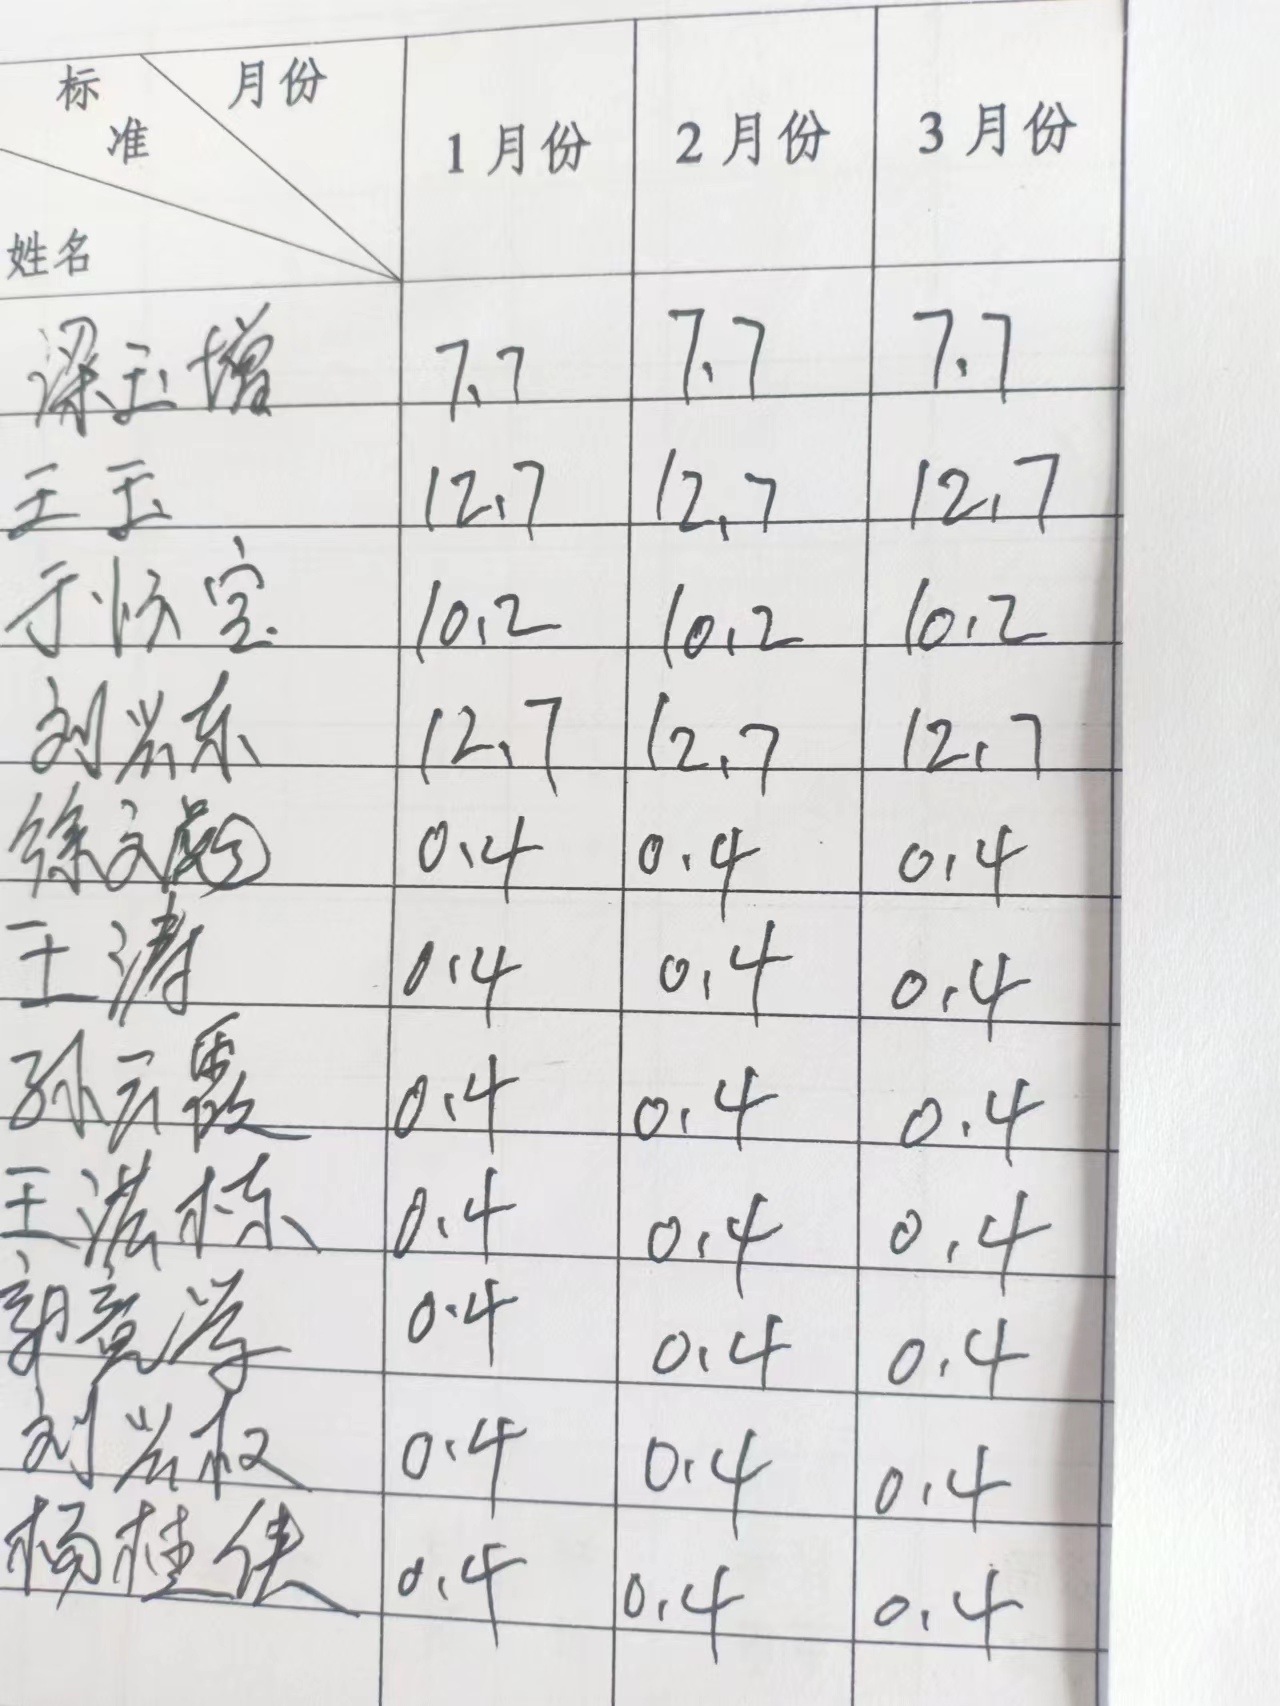 标准 月份 姓名 1月份 2月份 3月份
梁玉增 7.7 7.7 7.7
王玉 12.7 12.7 12.7
于 宝 10.2 10.2 10.2
刘岩东 12.7 12.7 12.7
徐文 0.4 0.4 0.4
王涛 0.4 0.4 0.4
孙云霞 0.4 0.4 0.4
王洪栋 0.4 0.4 0.4
郭 学 0.4 0.4 0.4
刘岩权 0.4 0.4 0.4
杨桂侠 0.4 0.4 0.4